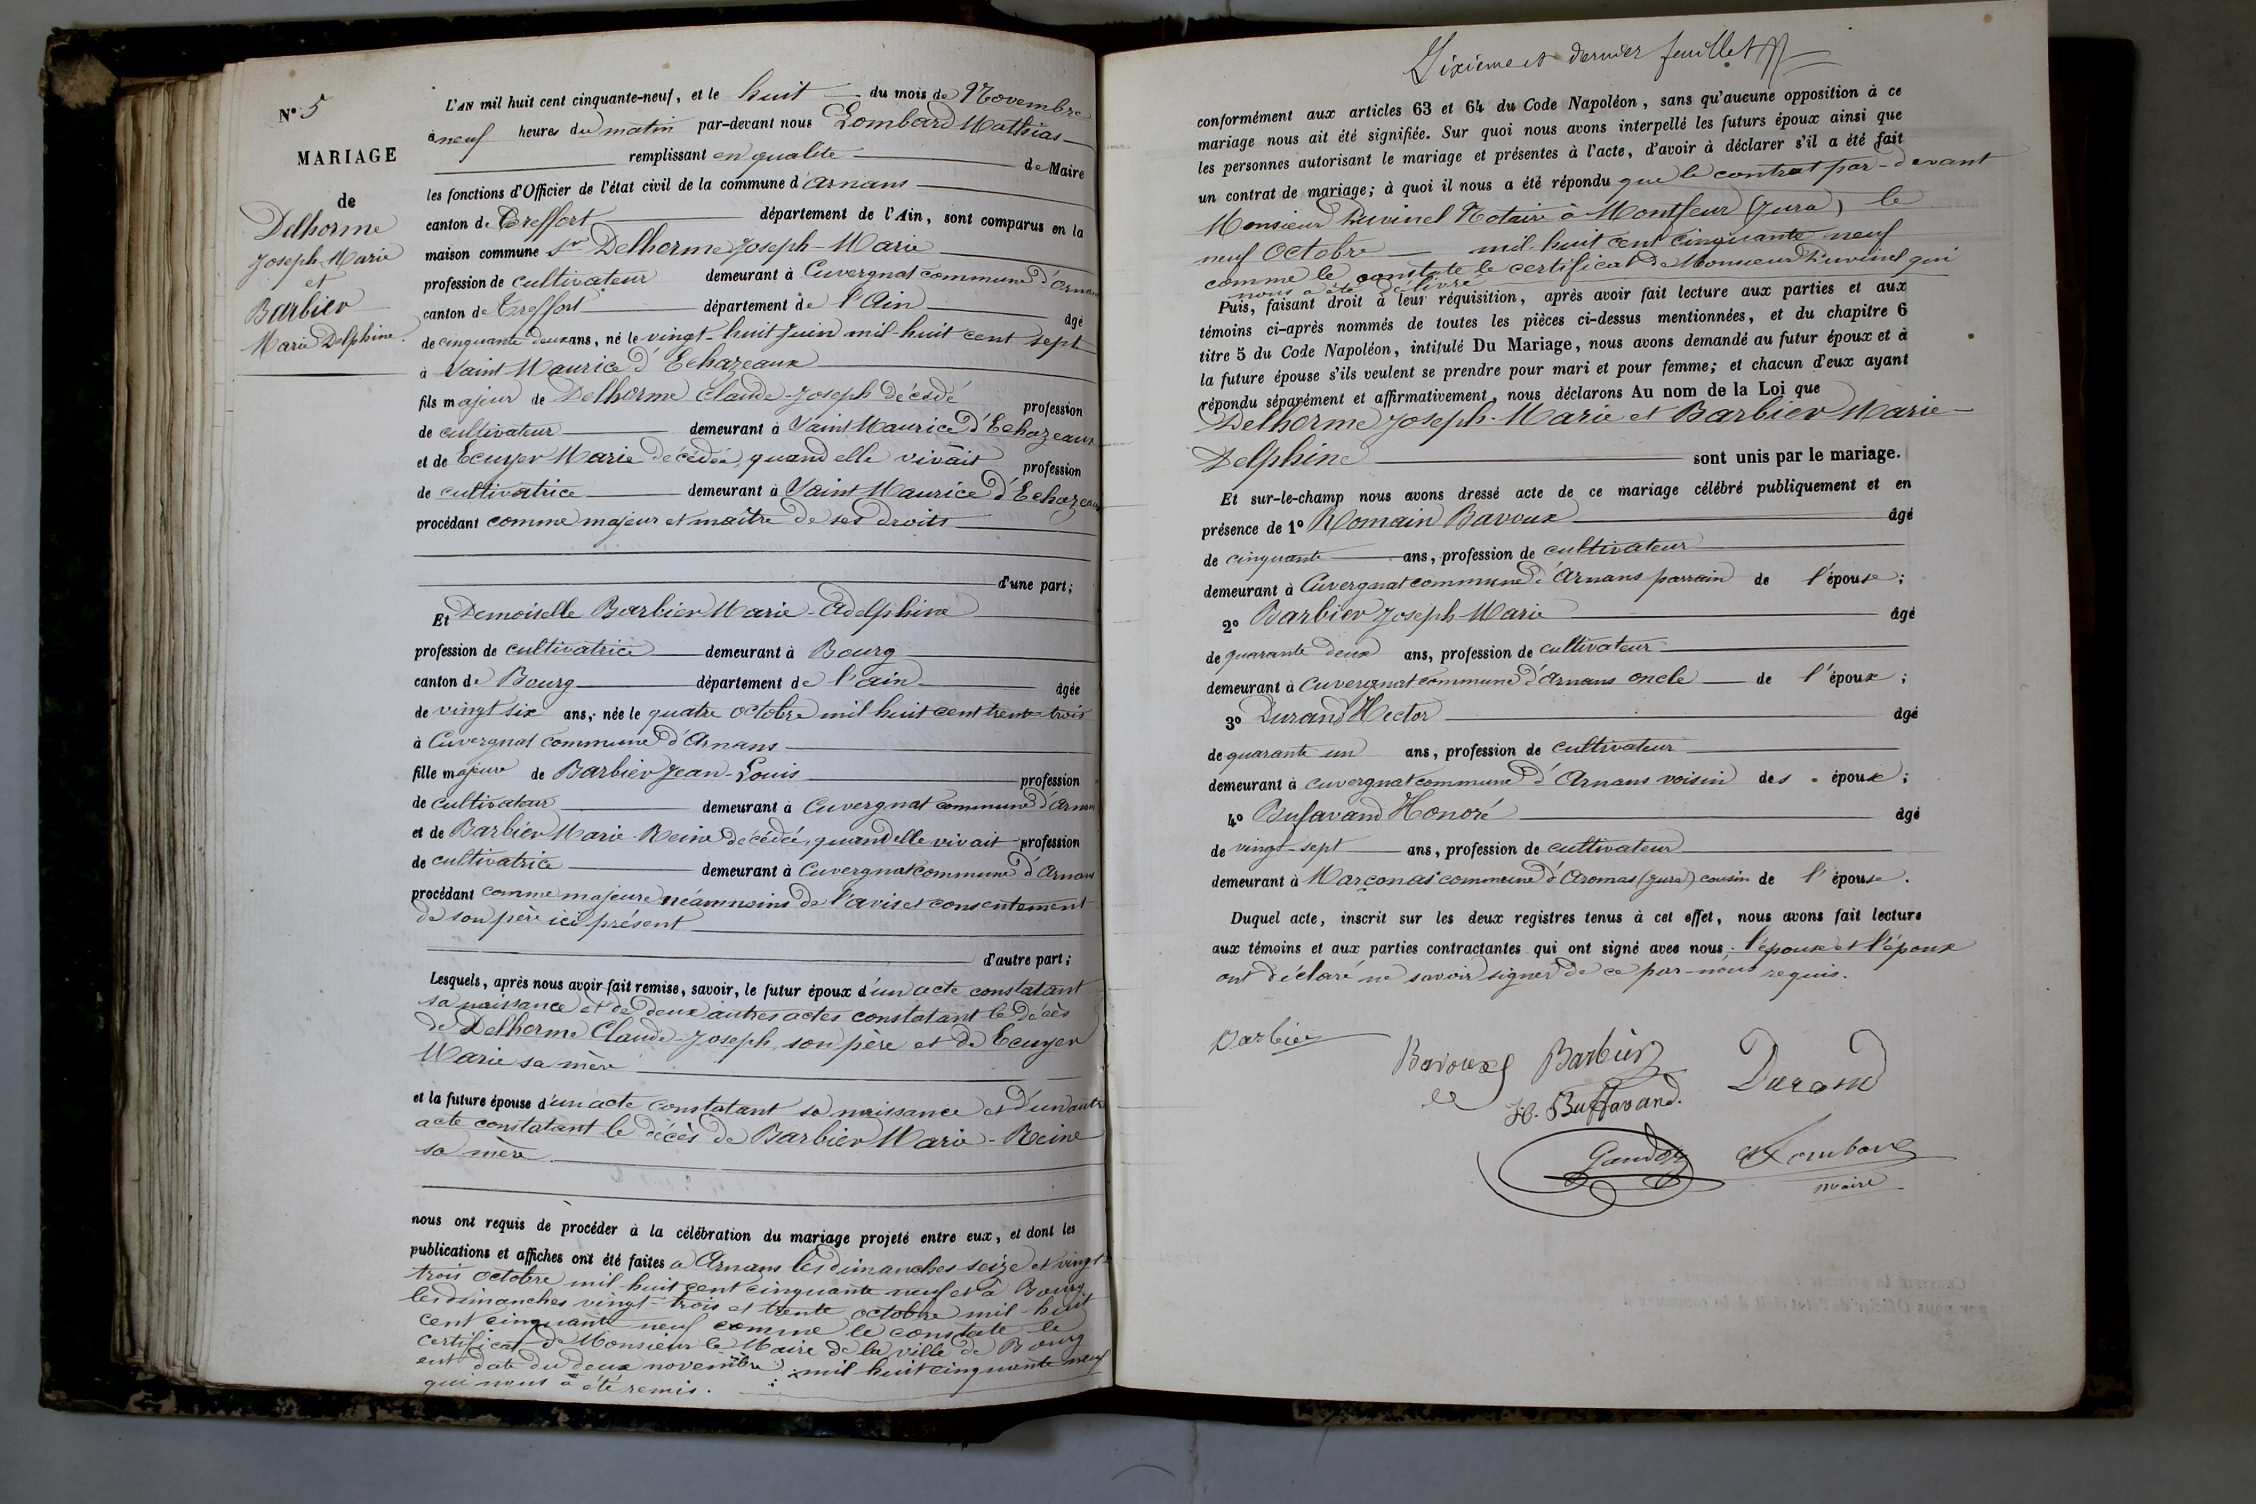 N° 5
MARIAGE
de
Delhorme
Joseph-Marie
et
Barbier
Marie Delphine.
L'AN mil huit cent cinquante-neuf, et le huit du mois de Novembre
à neuf heures du matin par-devant nous Lombard Mathias
remplissant en qualité de Maire
les fonctions d'Officier de l'état civil de la commune d'Arnans
canton de Treffort département de l'Ain, sont comparus en la
maison commune Sr Delhorme Joseph-Marie
profession de cultivateur demeurant à Cuvergnat commune d'Arnans
canton de Treffort département de l'Ain âgé
de cinquante deux ans, né le vingt-huit Juin mil-huit cent sept
à Saint Maurice d'Echazeaux
fils majeur de Delhorme Claude-Joseph décédé profession
de cultivateur demeurant à Saint Maurice d'Echazeaux
et de Ecuyer Marie décédée, quand elle vivait profession
de cultivatrice demeurant à Saint Maurice d'Echazeaux
procédant comme majeur et maître de ses droits
d'une part;
Et Demoiselle Barbier Marie-Adelphine
profession de cultivatrice demeurant à Bourg
canton de Bourg département de l'ain âgée
de vingt six ans, née le quatre octobre mil huit cent trente-trois
à Cuvergnat commune d'Arnans
fille majeure de Barbier Jean-Louis profession
de cultivateur demeurant à Cuvergnat commune d'Arnans
et de Barbier Marie-Reine décédée, quand elle vivait profession
de cultivatrice demeurant à Cuvergnat commune d'Arnans
procédant comme majeure néammoins de l'avis et consentement
de son père ici présent
d'autre part;
Lesquels, après nous avoir fait remise, savoir, le futur époux d'un acte constatant
sa naissance et de deux autres actes constatant le décès
de Delhorme Claude-Joseph, son père et de Ecuyer
Marie sa mère
et la future épouse d'un acte constatant sa naissance et d'un autre
acte constatant le décès de Barbier Marie-Reine
sa mère
nous ont requis de procéder à la célébration du mariage projeté entre eux, et dont les
publications et affiches ont été faites à Arnans les dimanches seize et vingt-
trois octobre mil huit cent cinquante neuf et à Bourg
les dimanches vingt-trois et trente octobre mil huit
cent cinquante neuf comme le constate le
certificat de Monsieur le Maire de la ville de Bourg
en date du deux novembre mil huit cinquante neuf
qui nous a été remis.
Sixième et dernier feuillet
conformément aux articles 63 et 64 du Code Napoléon, sans qu'aucune opposition à ce
mariage nous ait été signifiée. Sur quoi nous avons interpellé les futurs époux ainsi que
les personnes autorisant le mariage et présentes à l'acte, d'avoir à déclarer s'il a été fait
un contrat de mariage; à quoi il nous a été répondu que le contrat par-devant
Monsieur Notaire à Montfleur (Jura) le
neuf Octobre mil huit cent cinquante neuf
comme le constate le certificat de Monsieur qui
nous a été délivré
Puis, faisant droit à leur réquisition, après avoir fait lecture aux parties et aux
témoins ci-après nommés de toutes les pièces ci-dessus mentionnées, et du chapitre 6
titre 5 du Code Napoléon, intitulé Du Mariage, nous avons demandé au futur époux et à
la future épouse s'ils veulent se prendre pour mari et pour femme; et chacun d'eux ayant
répondu séparément et affirmativement, nous déclarons Au nom de la Loi que
Delhorme Joseph-Marie et Barbier Marie-
Delphine sont unis par le mariage.
Et sur-le-champ nous avons dressé acte de ce mariage célébré publiquement et en
présence de 1° Romain Bavoux âgé
de cinquante ans, profession de cultivateur
demeurant à Cuvergnat commune d'Arnans parrain de l'épouse;
2° Barbier Joseph-Marie âgé
de quarante deux ans, profession de cultivateur
demeurant à Cuvergnat commune d'Arnans oncle de l'époux;
3° Durand Hector âgé
de quarante un ans, profession de cultivateur
demeurant à cuvergnat commune d'Arnans voisin des époux;
4° Bufavand Honoré âgé
de vingt-sept ans, profession de cultivateur
demeurant à Marçonas commune d'Aromas (Jura) cousin de l'épouse.
Duquel acte, inscrit sur les deux registres tenus à cet effet, nous avons fait lecture
aux témoins et aux parties contractantes qui ont signé avec nous; l'époux et l'époux
ont déclaré ne savoir signer de ce par-nous requis.
Barbier
Bavoux Barbier Durand
H. Buffavand.
Gandon Lombard
maire